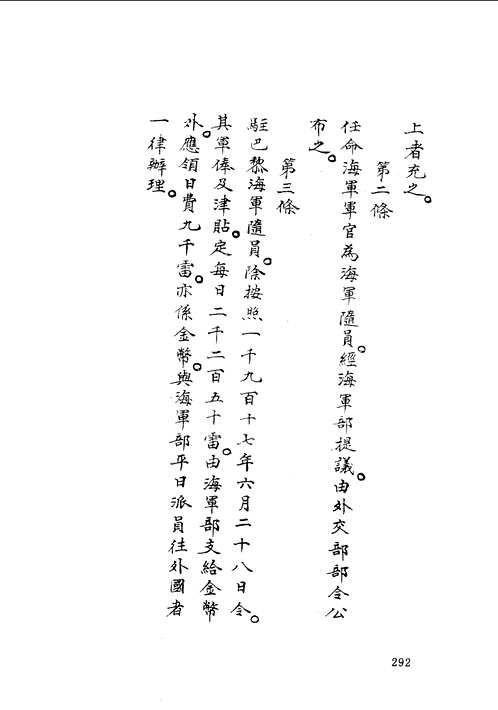 上者充之。
第二條
任命海軍軍官為海軍隨員。經海軍部提議。由外交部部令公
布之。
第三條
駐巴黎海軍隨員。除按照一千九百十七年六月二十八日令。
其軍俸及津貼。定每日二千二百五十雷。由海軍部支給金幣
外。應領日費九千雷。亦係金幣。與海軍部平日派員往外國者
一律辦理。
292